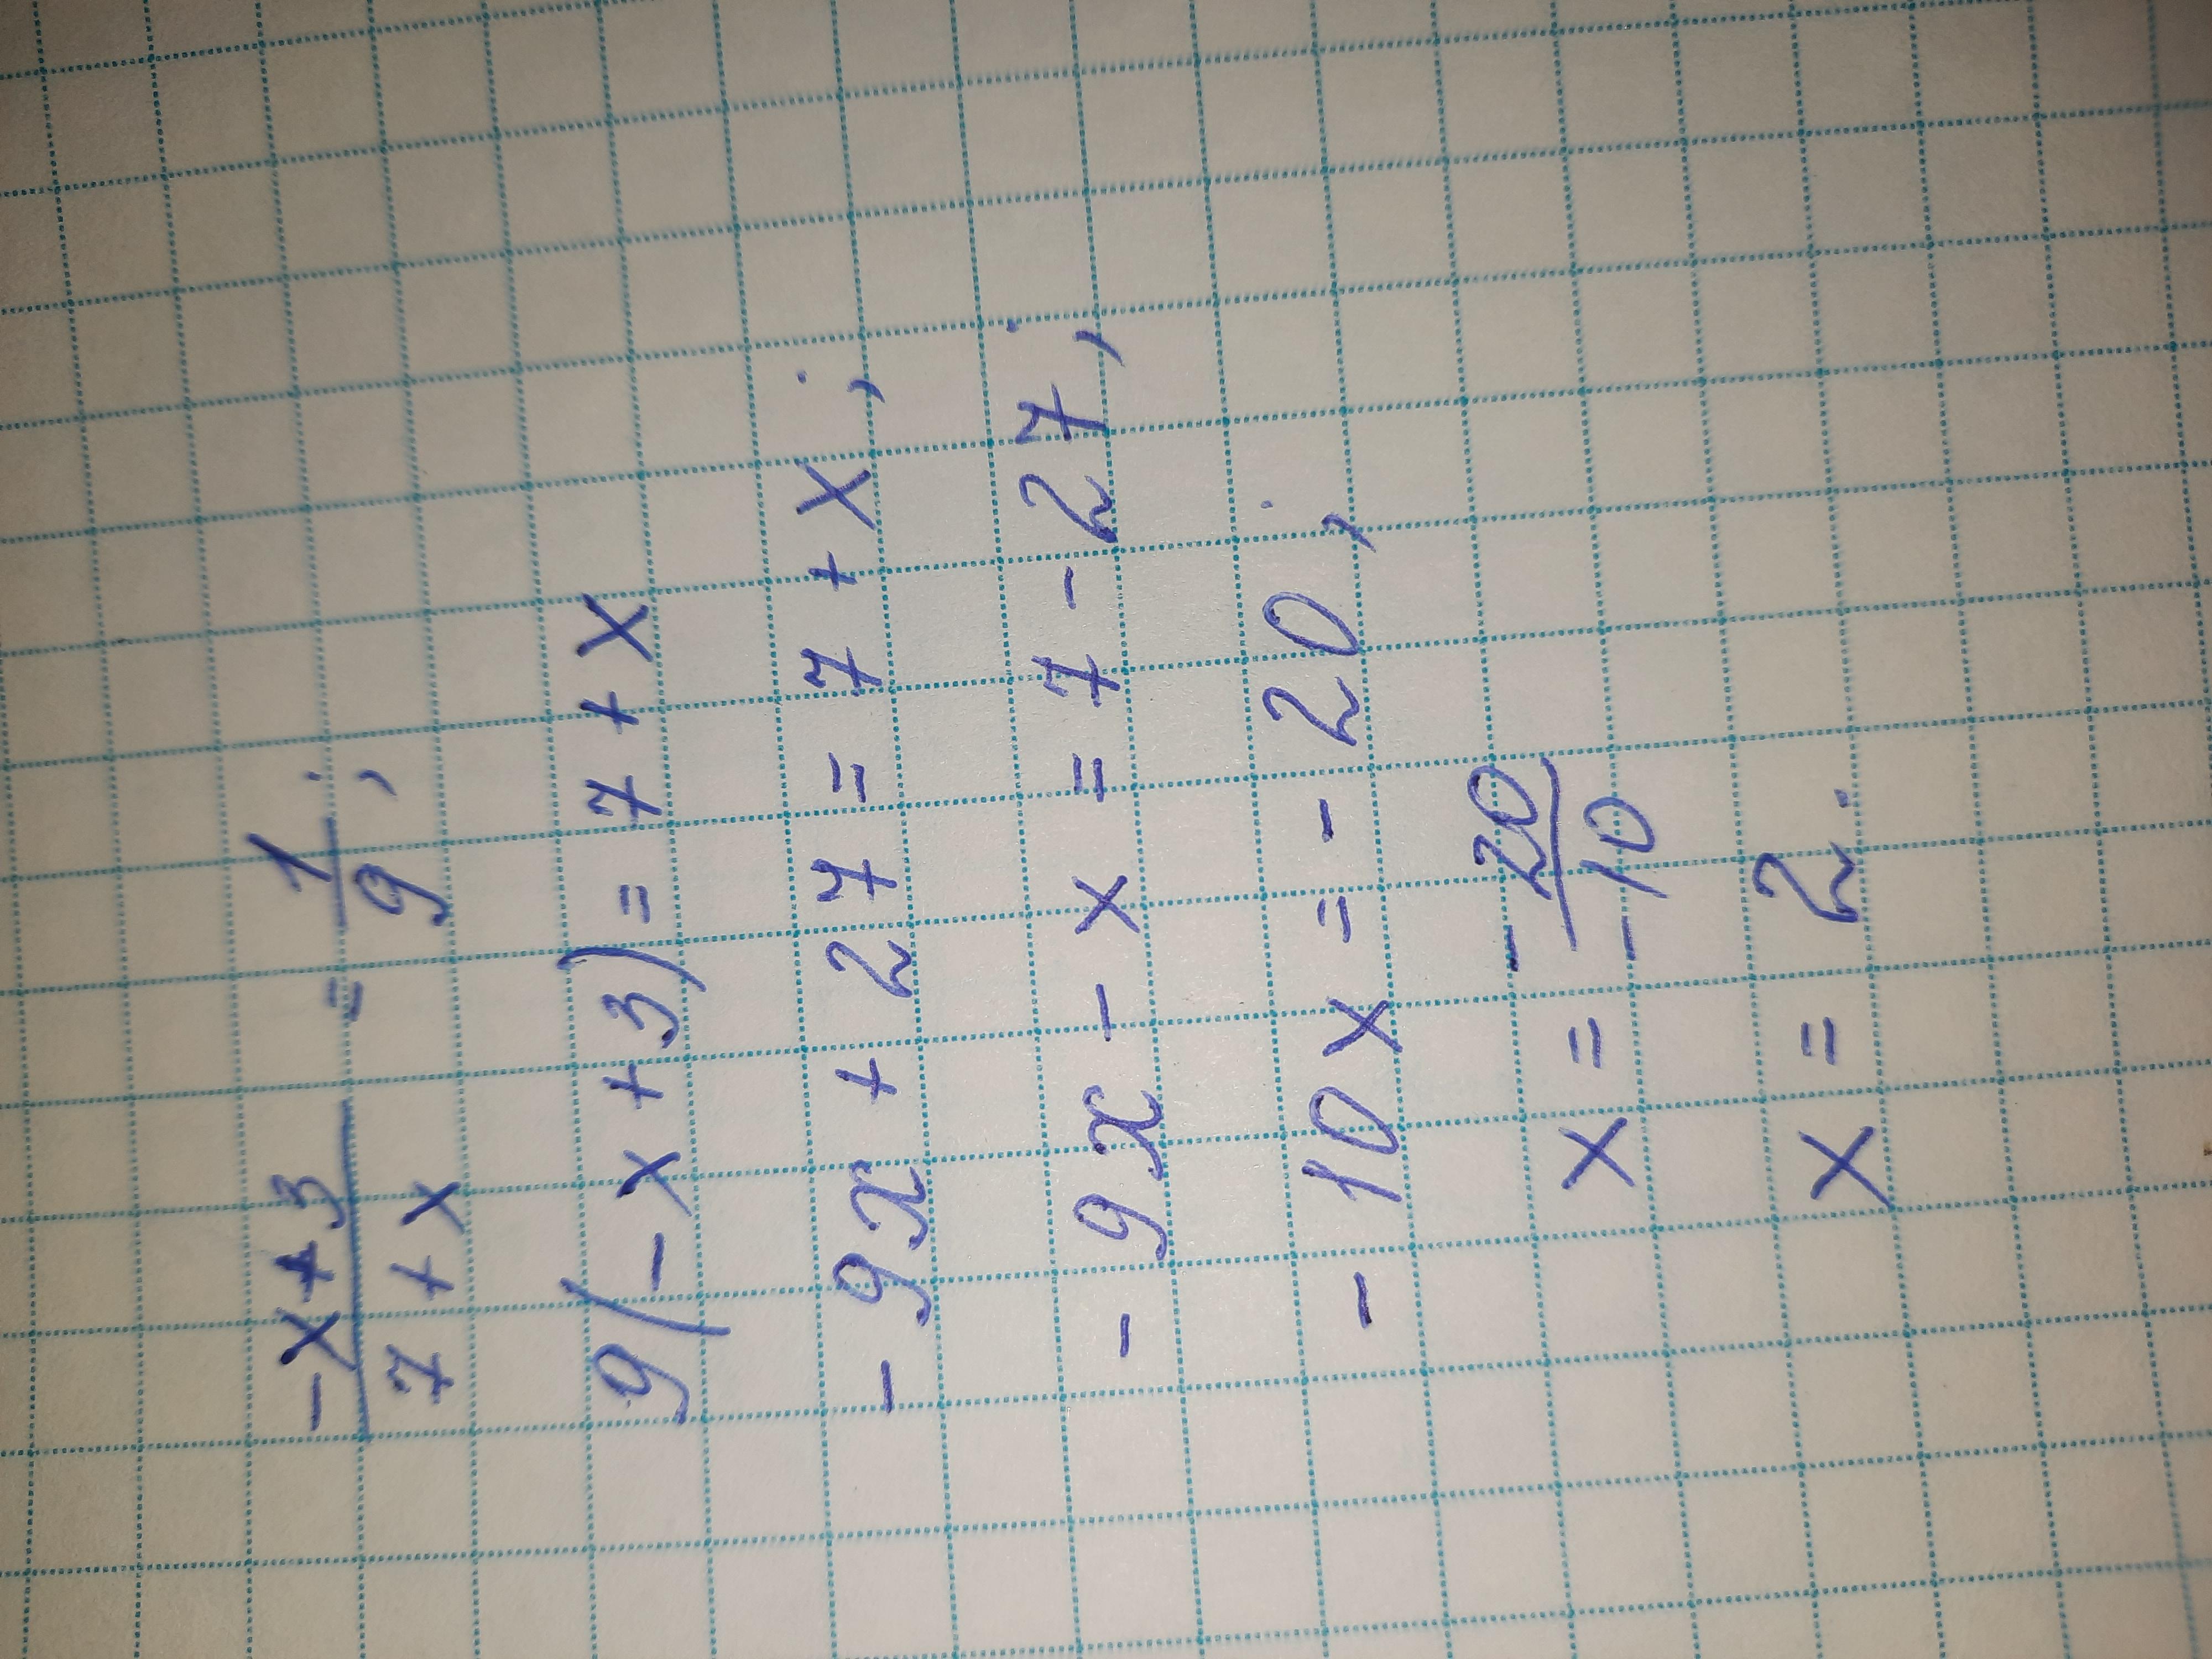 (-x+3)/(7+x) = 1/9;
9(-x+3)=7+x
-9x+27=7+x;
-9x-x=7-27;
-10x=-20;
x=-20/-10
x=2.